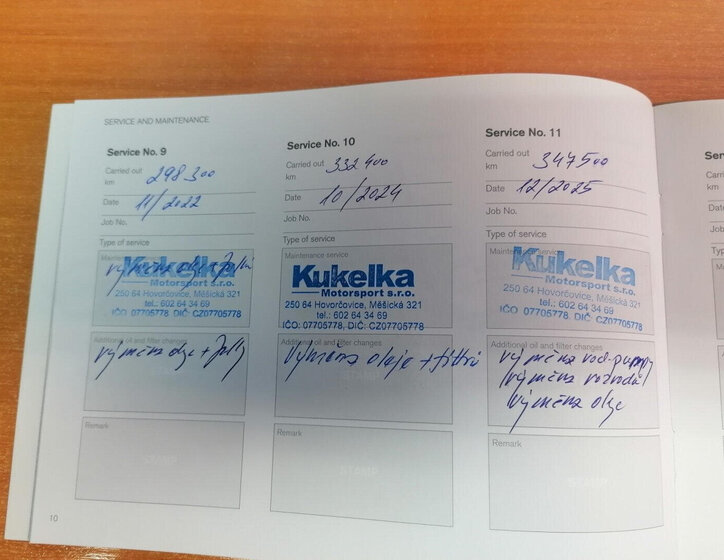 SERVICE AND MAINTENANCE
Service No. 9
Carried out
km
298 300
Date
11/2022
Job No.
Type of service
Maintenance service
výměna oleje + filtrů
Kukelka
Motorsport s.r.o.
250 64 Hovorčovice, Měšická 321
tel.: 602 64 34 69
IČO: 07705778, DIČ: CZ07705778
Additional oil and filter changes
výměna oleje + filtrů
Remark
STAMP
10
Service No. 10
Carried out
km
332 400
Date
10/2024
Job No.
Type of service
Maintenance service
Kukelka
Motorsport s.r.o.
250 64 Hovorčovice, Měšická 321
tel.: 602 64 34 69
IČO: 07705778, DIČ: CZ07705778
Additional oil and filter changes
výměna oleje + filtrů
Remark
STAMP
Service No. 11
Carried out
km
347 500
Date
12/2025
Job No.
Type of service
Maintenance service
Kukelka
Motorsport s.r.o.
250 64 Hovorčovice, Měšická 321
tel.: 602 64 34 69
IČO: 07705778, DIČ: CZ07705778
Additional oil and filter changes
výměna vod. pumpy
výměna rozvodů
výměna oleje
Remark
STAMP